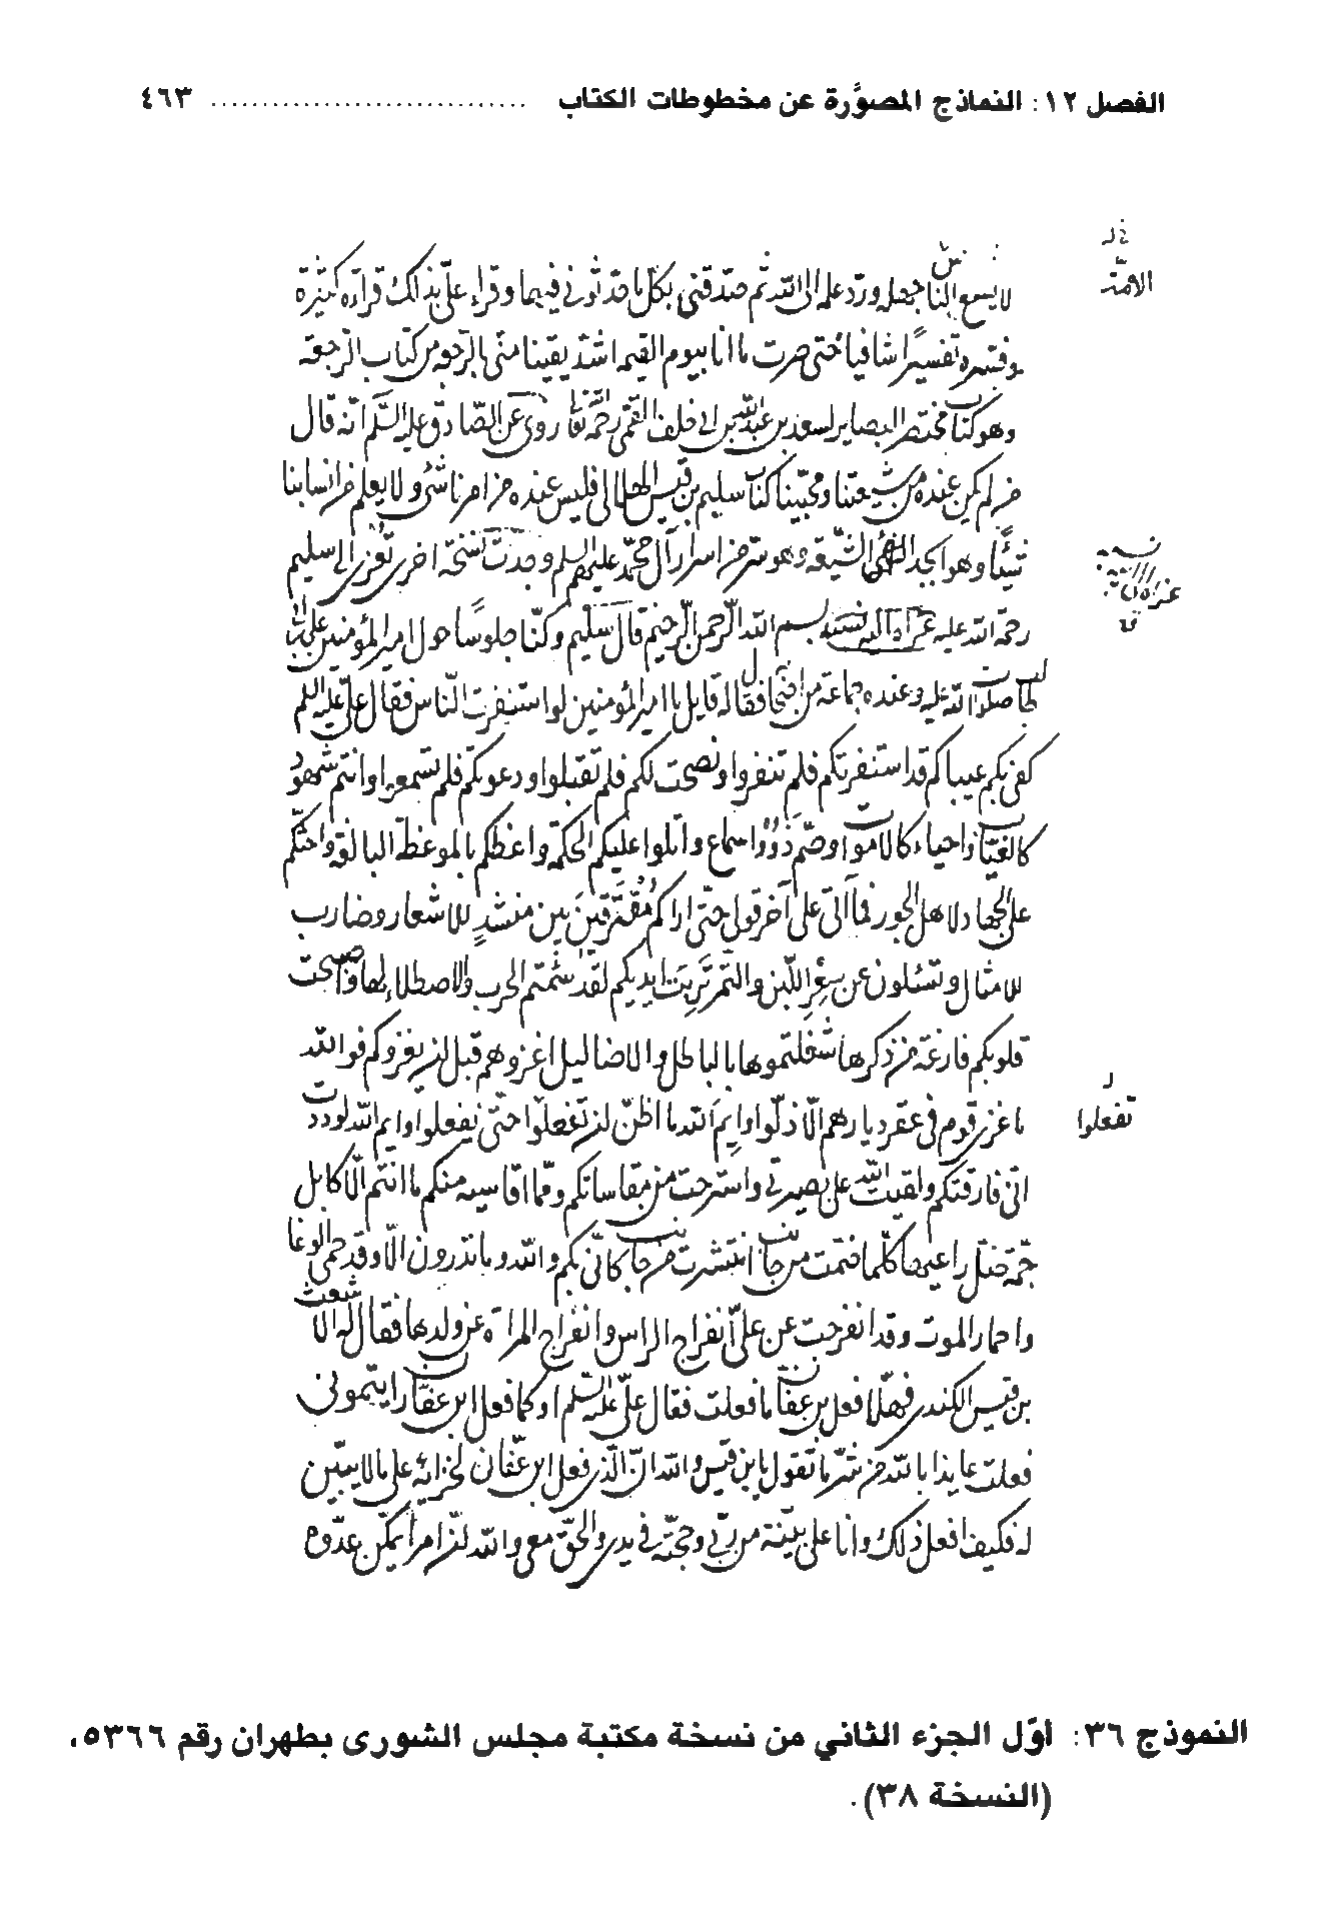 الفصل ١٢: النماذج المصوَّرة عن مخطوطات الكتاب ............................... ٤٦٣
لا يسمع الناس جهله وردّ علمه الى الله ثم صدّقنى بكل ما حدثونى فيها وقراء علىّ بذالك قراءه كثيرة
الامّة
وفسّره تفسيرًا شافيا حتى صرت ما انا بيوم القيمه اشدّ يقينا منّى بالرجعه من كتاب الرجعة
وهو كتاب مختصر البصاير لسعد بن عبدالله بن ابى خلف القمّى رحمة الله روى عن الصّادق عليه السّلم انّه قال
من لم يكن عنده من شيعتنا ومحبّينا كتاب سليم بن قيس الهلالى فليس عنده من امرنا شىء ولا يعلم من اسبابنا
شيئًا وهو ابجد الشّيعة وهو سرّ من اسرار آل محمّد عليهم السلم وجدت نسخة اخرى تعزى الى سليم
رحمة الله عليه بسم الله الرّحمن الرّحيم قال سليم وكنّا جلوسًا حول امير المؤمنين على بن ابى
طالب صلوات الله عليه وعنده جماعة من اصحابه فقال له قايل يا امير المؤمنين لو استنفرت النّاس فقال علىّ عليه السلم
كفى بكم عيبا كم قد استنفرتكم فلم تنفروا ونصحت لكم فلم تقبلوا ودعوتكم فلم تسمعوا وانتم شهود
كالغيّاب واحياء كالاموات وصمّ ذووا اسماع واتلوا عليكم الحكمة واعظكم بالموعظة البالغة واحثّكم
على الجهاد لاهل الجور فما آتى على آخر قولى حتّى اراكم مُتفرّقين بين منشدٍ للاشعار وضارب
للامثال وتسئلون عن سعر اللّبن والتمر تربت ايديكم لقد سئمتم الحرب والاصطلاء لها واصبحت
قلوبكم فارغة من ذكرها شغلتموها بالباطل والاضاليل اغزوهم قبل ان يغزوكم فوالله
ما غزى قوم فى عقر ديارهم الّا ذلّوا وايم الله ما اظنّ ان تفعلوا حتّى يفعلوا وايم الله لوددت
تفعلوا
انّى فارقتكم ولقيت الله على بصيرتى واسترحت من مقاساتكم وممّا اقاسيه منكم ما انتم الّا كابل
جمّة ضلّ راعيها كلّما ضمّت من جانب انتشرت من جانب كانّى بكم والله وما تدرون الّا وقد حمى الوغا
واحمار الموت وقد انفرجت عن علىّ انفراج الراس وانفراج المراة عن ولدها فقال له الاشعث
بن قيس الكندى فهلّا فعل بن عفان ما فعلت فقال علىّ عليه السّلم اوكما فعل ابن عفّان رايتمونى
فعلت عايذا بالله من شرّ ما تقول يابن قيس والله انّ الّذى فعل ابن عفّان لمخزاة على مالا يبيّن
له فكيف افعل ذلك وانا على بيّنة من ربّى وحجّته فى يدى والحقّ معى والله انّ امرأ يمكّن عدّوه
النموذج ٣٦: أوّل الجزء الثاني من نسخة مكتبة مجلس الشورى بطهران رقم ٥٣٦٦،
(النسخة ٣٨).